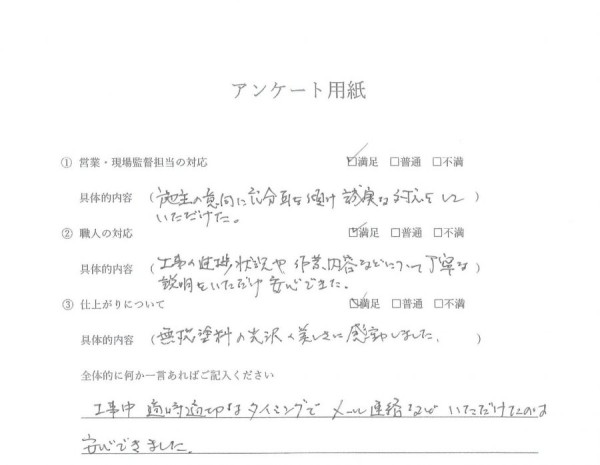 アンケート用紙
① 営業・現場監督担当の対応 ☑満足 □普通 □不満
具体的内容 (施主の意向に充分耳を傾け 誠実な対応をして
いただけた。)
② 職人の対応 ☑満足 □普通 □不満
具体的内容 (工事の進捗状況や作業内容などについて丁寧な
説明をいただけ安心できた。)
③ 仕上がりについて ☑満足 □普通 □不満
具体的内容 (無機塗料の光沢の美しさに感動しました。)
全体的に何か一言あればご記入ください
工事中 適時適切なタイミングで メール連絡などいただけたのは
安心できました。